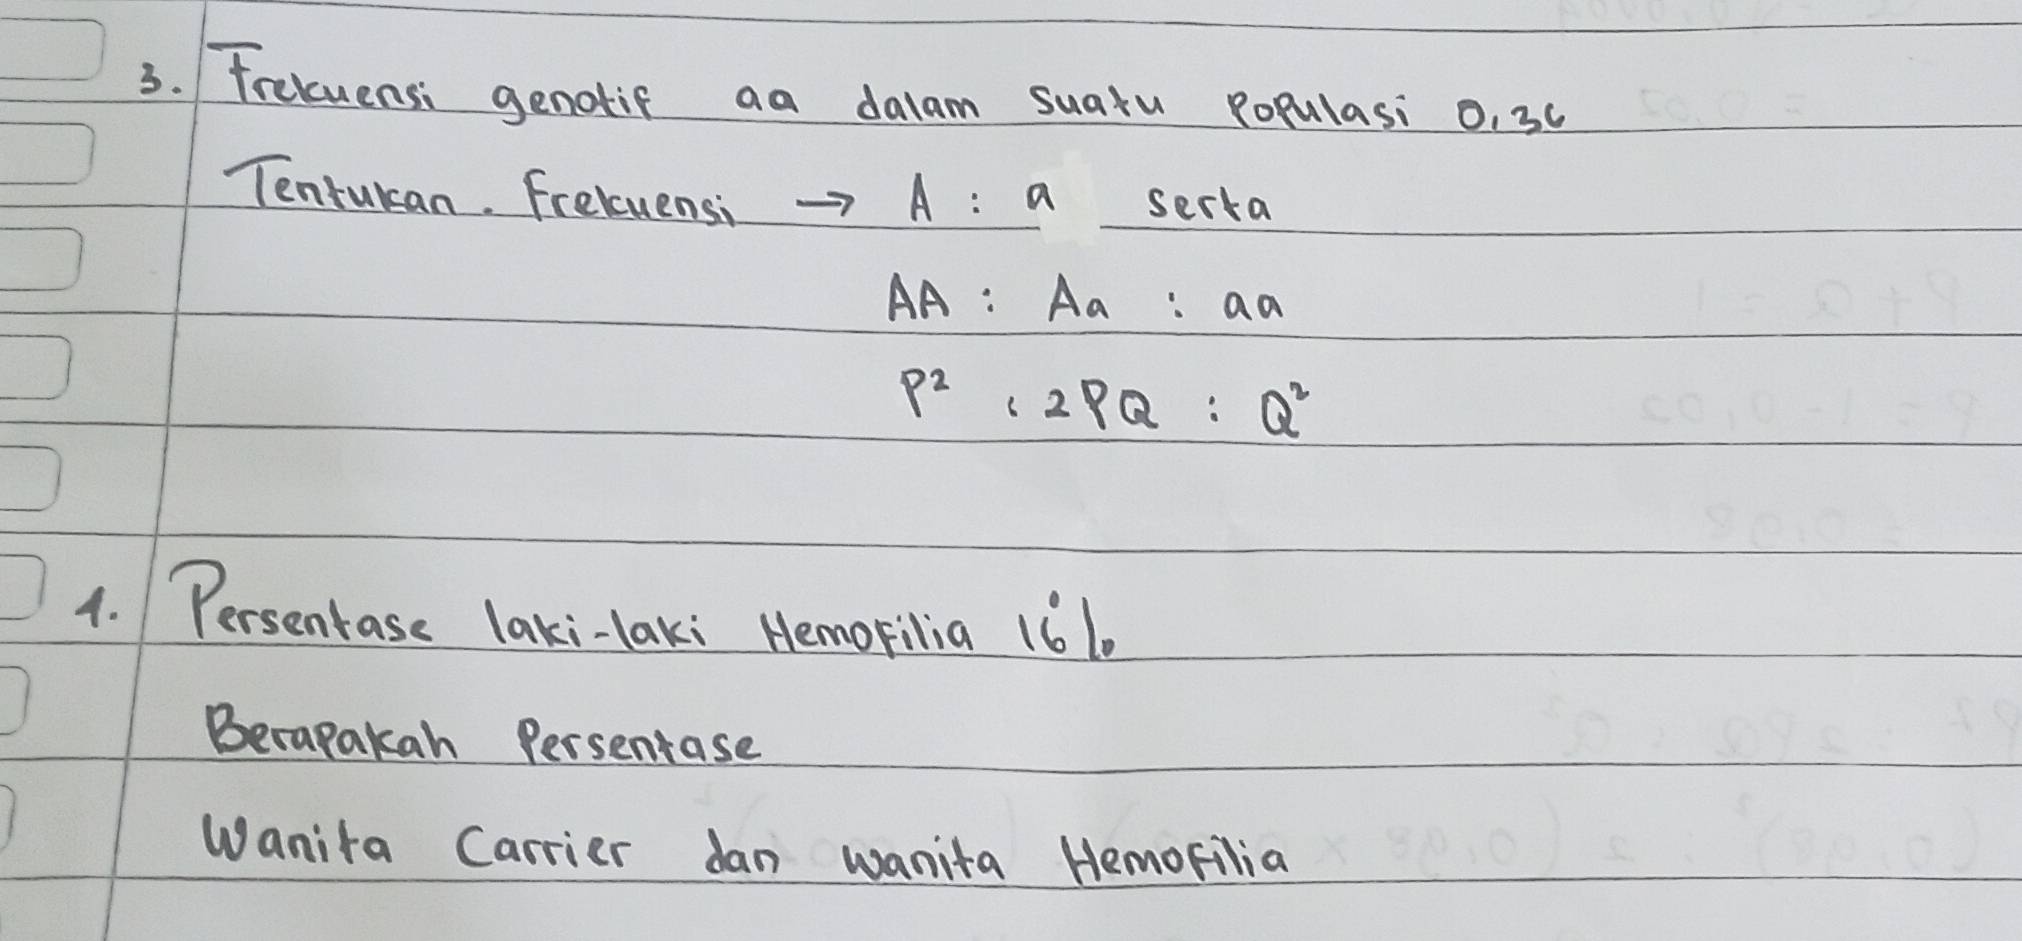 3. Frekuensi genotif aa dalam suatu populasi 0,36
Tentukan. Frekuensi → A : a serta
AA : Aa : aa
P² : 2PQ : Q²
1. Persentase laki-laki Hemofilia 16%
Berapakah Persentase
Wanita Carrier dan wanita Hemofilia